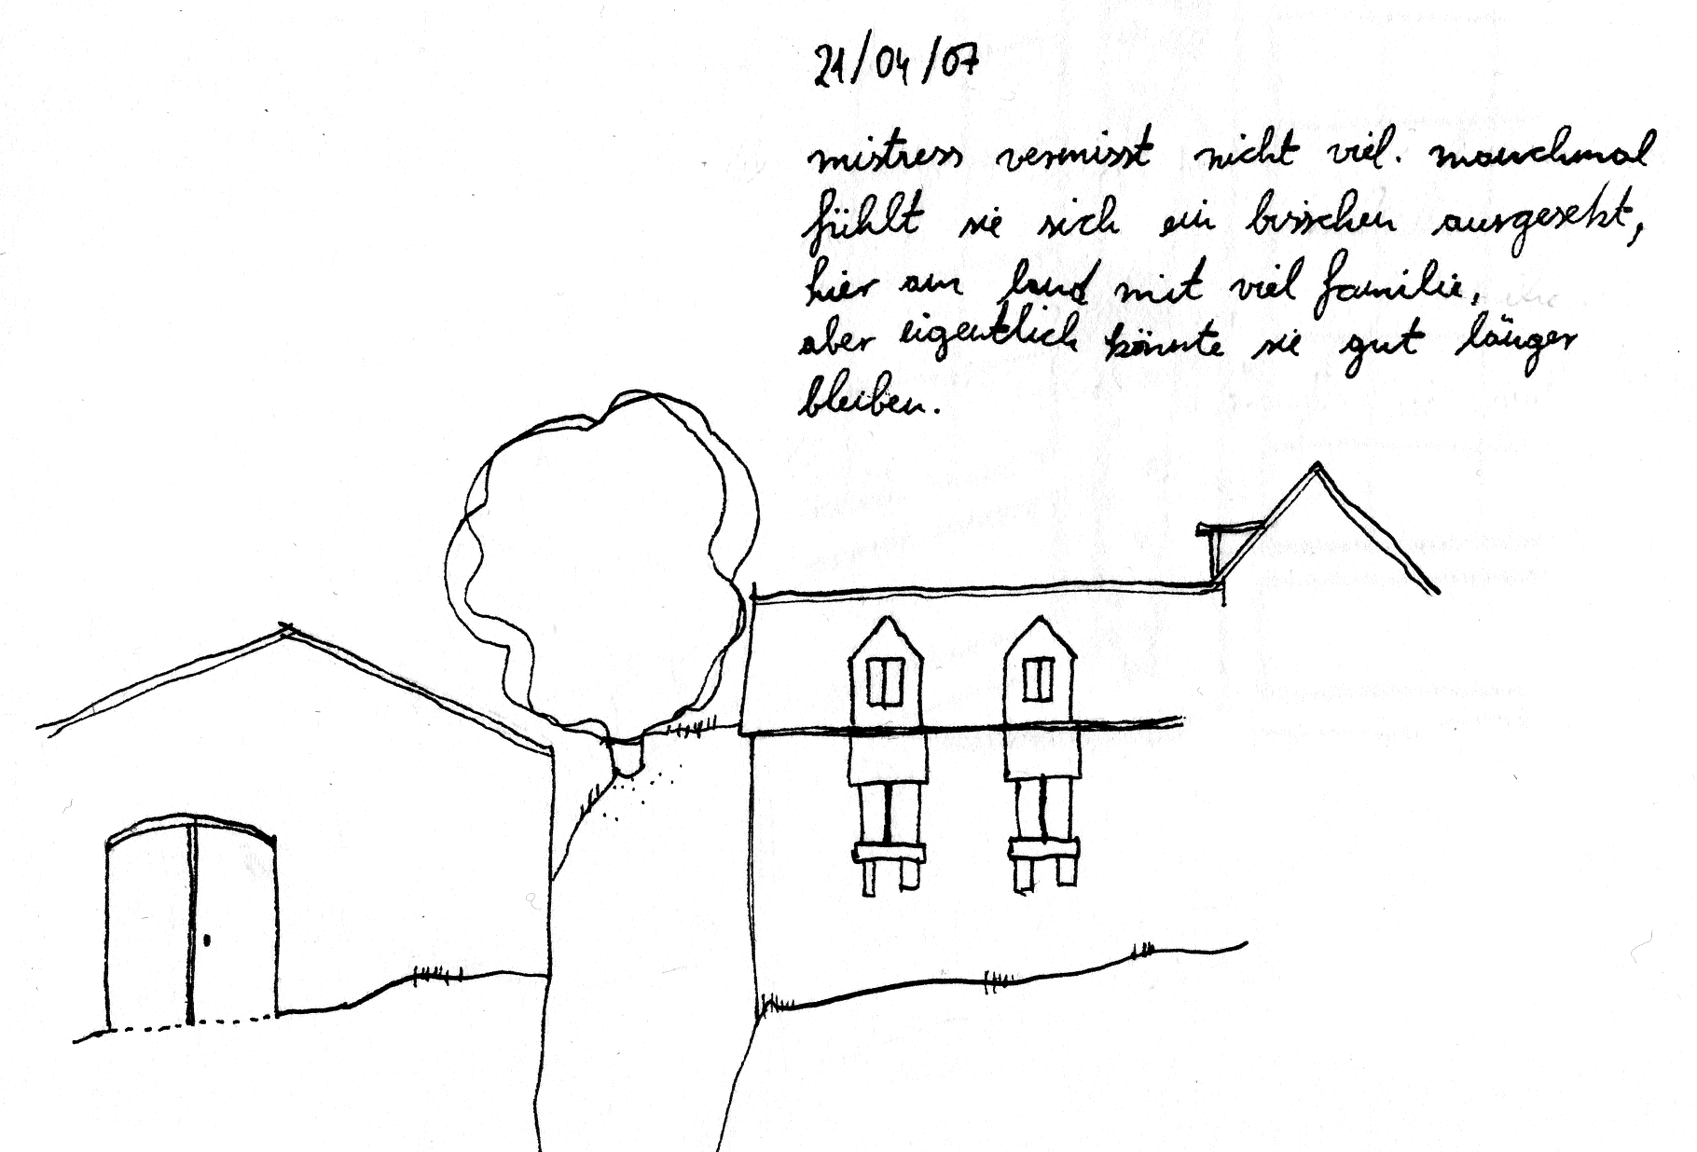 21/04/07
mistress vermisst nicht viel. manchmal
fühlt sie sich ein bisschen ausgesetzt,
hier am land mit viel familie,
aber eigentlich könnte sie gut länger
bleiben.